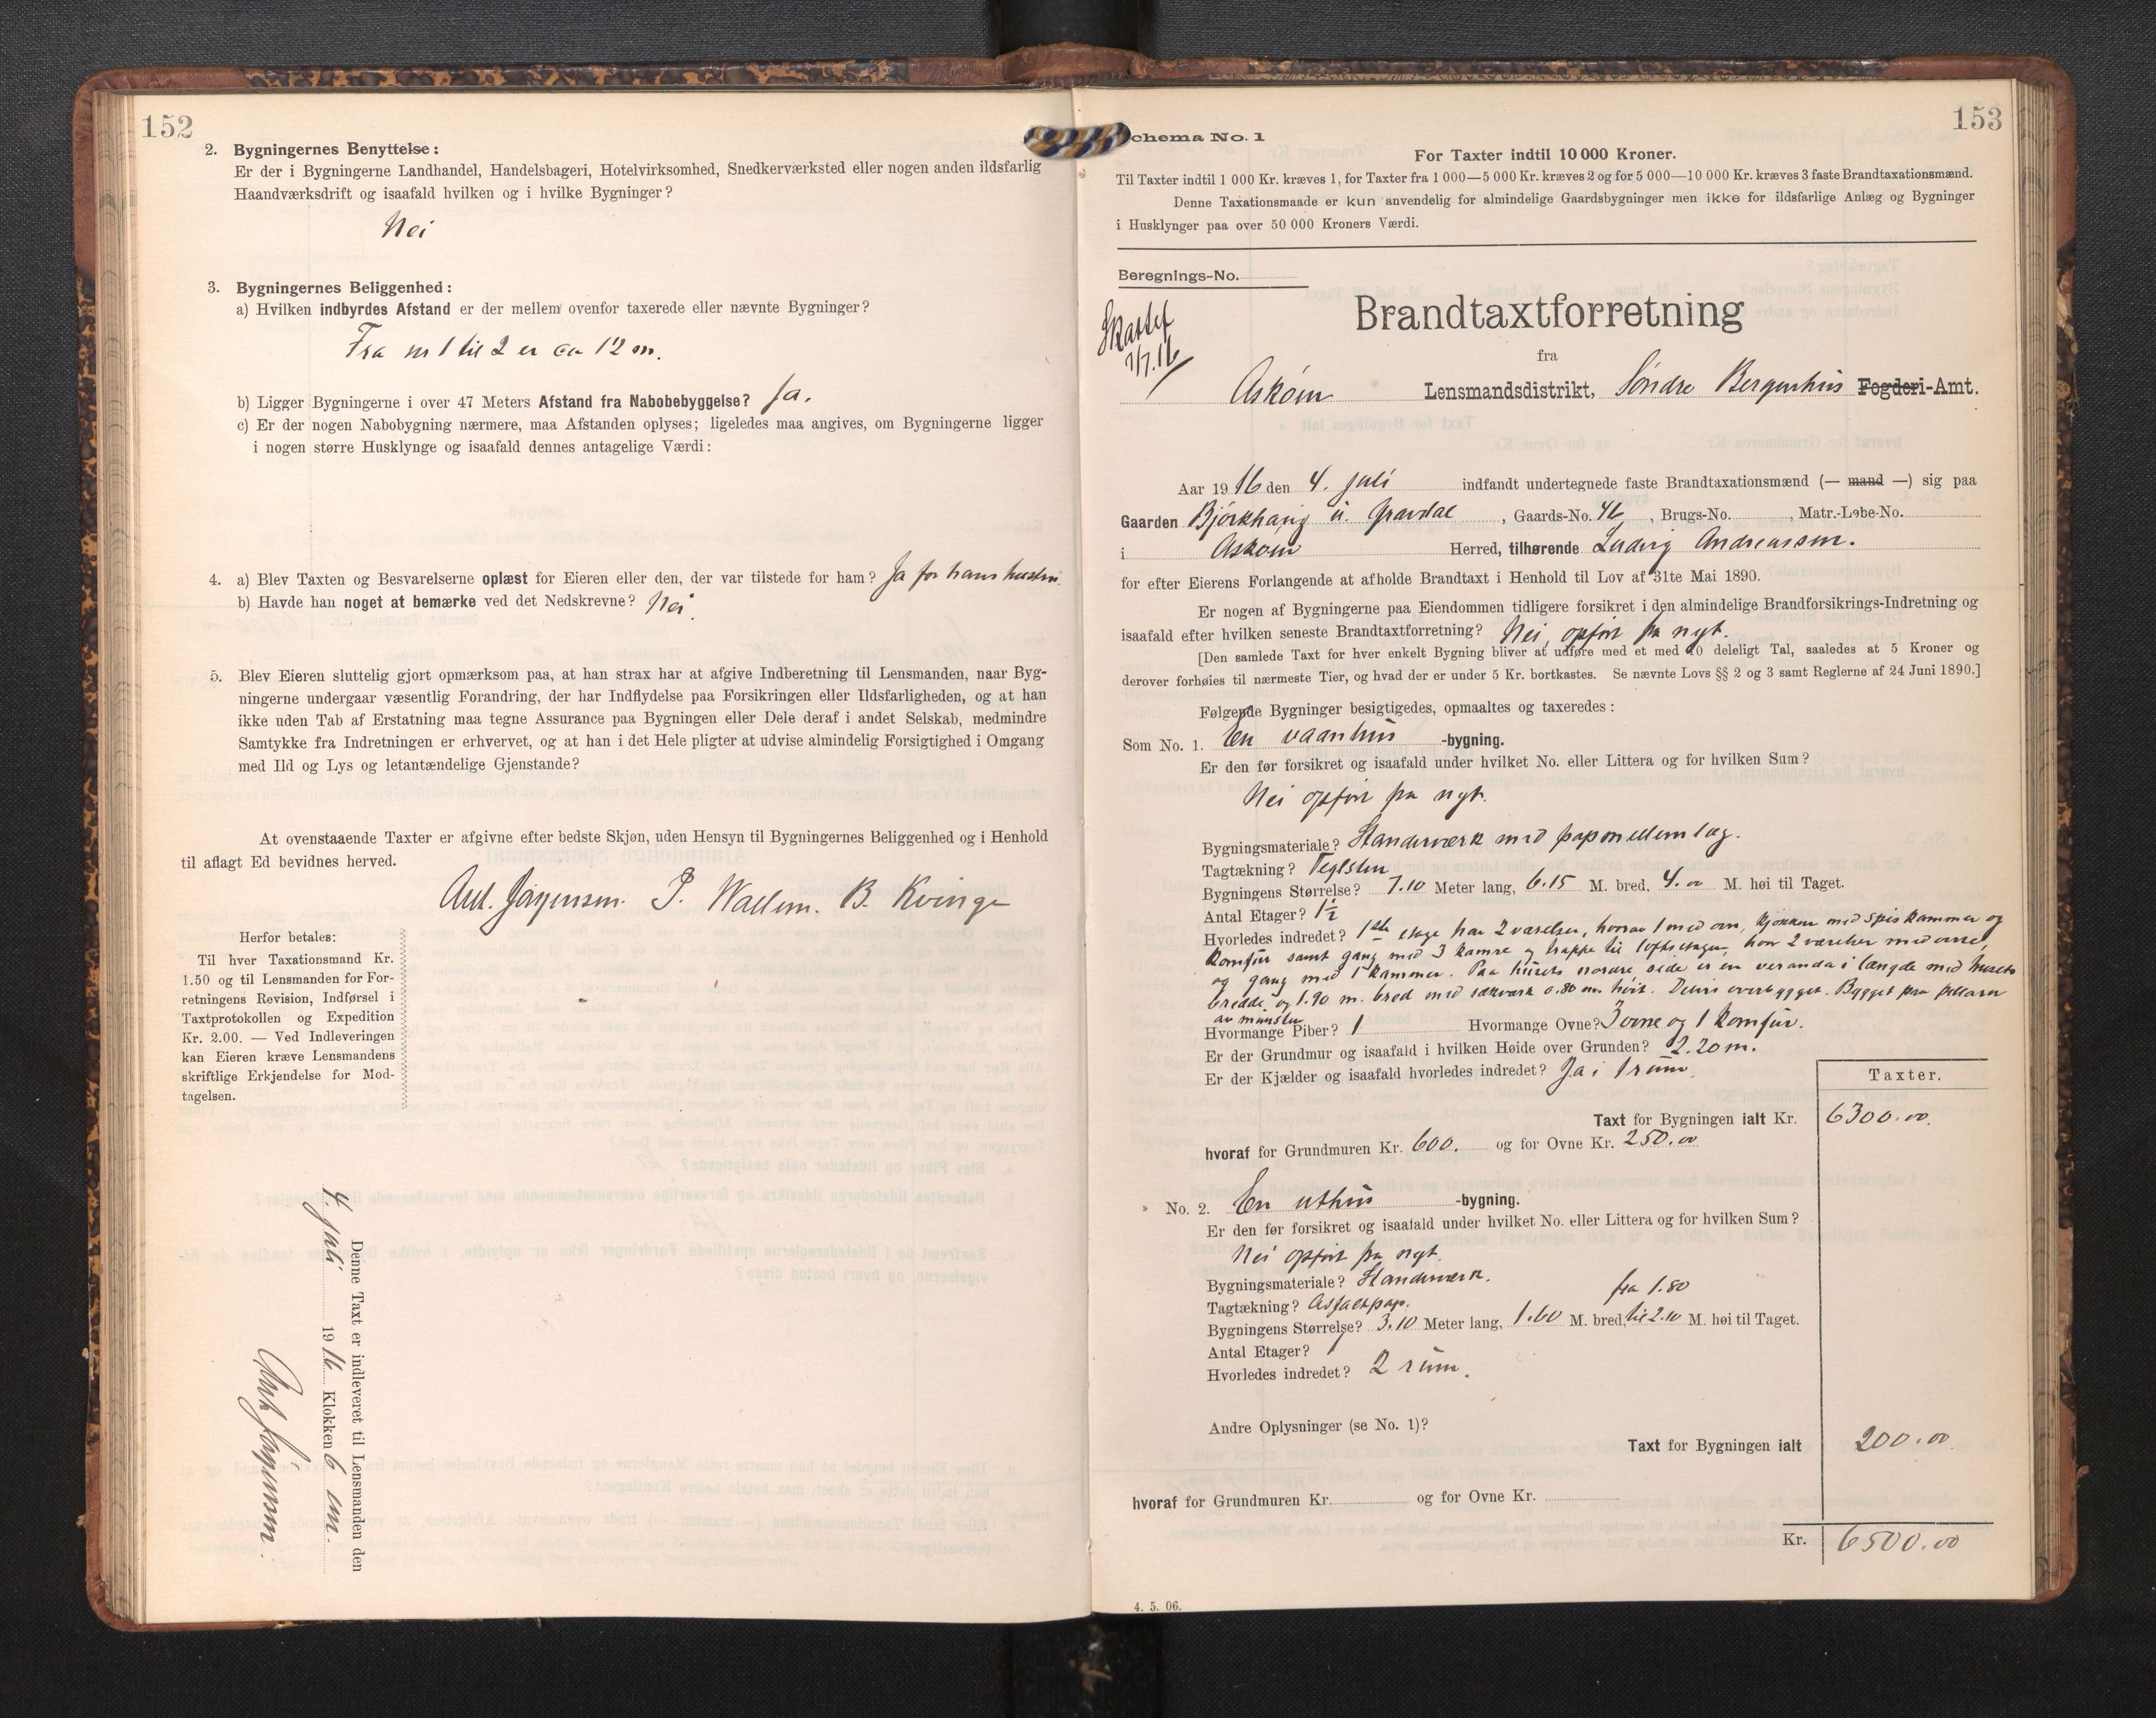 152
2. Bygningernes Benyttelse:
Er der i Bygningerne Landhandel, Handelsbageri, Hotelvirksomhed, Snedkerværksted eller nogen anden ildsfarlig
Haandværksdrift og isaafald hvilken og i hvilke Bygninger?
Nei
3. Bygningernes Beliggenhed:
a) Hvilken indbyrdes Afstand er der mellem ovenfor taxerede eller nævnte Bygninger?
Fra nr 1 til 2 er ca 12 m.
b) Ligger Bygningerne i over 47 Meters Afstand fra Nabobebyggelse? Ja.
c) Er der nogen Nabobygning nærmere, maa Afstanden oplyses; ligeledes maa angives, om Bygningerne ligger
i nogen større Husklynge og isaafald dennes antagelige Værdi:
4. a) Blev Taxten og Besvarelserne oplæst for Eieren eller den, der var tilstede for ham? Ja for hans hustru.
b) Havde han noget at bemærke ved det Nedskrevne? Nei.
5. Blev Eieren sluttelig gjort opmærksom paa, at han strax har at afgive Indberetning til Lensmanden, naar Byg-
ningerne undergaar væsentlig Forandring, der har Indflydelse paa Forsikringen eller Ildsfarligheden, og at han
ikke uden Tab af Erstatning maa tegne Assurance paa Bygningen eller Dele deraf i andet Selskab, medmindre
Samtykke fra Indretningen er erhvervet, og at han i det Hele pligter at udvise almindelig Forsigtighed i Omgang
med Ild og Lys og letantændelige Gjenstande?
At ovenstaaende Taxter er afgivne efter bedste Skjøn, uden Hensyn til Bygningernes Beliggenhed og i Henhold
til aflagt Ed bevidnes herved.
Ant. Jørgensen. P. Wallem. B. Kvinge
Herfor betales:
Til hver Taxationsmand Kr.
1.50 og til Lensmanden for For-
retningens Revision, Indførsel i
Taxtprotokollen og Expedition
Kr. 2.00. — Ved Indleveringen
kan Eieren kræve Lensmandens
skriftlige Erkjendelse for Mod-
tagelsen.
Denne Taxt er indleveret til Lensmanden den
4. juli 1916 Klokken 6 em.
Ant Jørgensen.
153
chema No. 1
For Taxter indtil 10 000 Kroner.
Til Taxter indtil 1 000 Kr. kræves 1, for Taxter fra 1 000—5 000 Kr. kræves 2 og for 5 000—10 000 Kr. kræves 3 faste Brandtaxationsmænd.
Denne Taxationsmaade er kun anvendelig for almindelige Gaardsbygninger men ikke for ildsfarlige Anlæg og Bygninger
i Husklynger paa over 50 000 Kroners Værdi.
Beregnings-No.
7/7.16
Brandtaxtforretning
fra
Askøen Lensmandsdistrikt, Søndre Bergenhus Fogderi-Amt.
Aar 1916 den 4. juli indfandt undertegnede faste Brandtaxationsmænd (— mand —) sig paa
Gaarden Bjørkhaug u. Gravdal, Gaards-No. 46, Brugs-No. , Matr.-Løbe-No.
i Askøen Herred, tilhørende Ludvig Andreassen.
for efter Eierens Forlangende at afholde Brandtaxt i Henhold til Lov af 31te Mai 1890.
Er nogen af Bygningerne paa Eiendommen tidligere forsikret i den almindelige Brandforsikrings-Indretning og
isaafald efter hvilken seneste Brandtaxtforretning? Nei, opført fra nyt.
[Den samlede Taxt for hver enkelt Bygning bliver at udføre med et med 10 deleligt Tal, saaledes at 5 Kroner og
derover forhøies til nærmeste Tier, og hvad der er under 5 Kr. bortkastes. Se nævnte Lovs §§ 2 og 3 samt Reglerne af 24 Juni 1890.]
Følgende Bygninger besigtigedes, opmaaltes og taxeredes:
Som No. 1. En vaanhus -bygning.
Er den før forsikret og isaafald under hvilket No. eller Littera og for hvilken Sum?
Nei opført fra nyt.
Bygningsmateriale? Standerværk med papmellemlæg.
Tagtækning? Teglsten
Bygningens Størrelse? 7.10 Meter lang, 6.15 M. bred, 4.00 M. høi til Taget.
Antal Etager? 1½
Hvorledes indredet? 1ste etage har 2 værelser, hvorav 1 med ovn, kjøkken med spiskammer og
komfur samt gang med 3 kamre og trappe til loftsetagen, hvor 2 værelser med ovne,
og gang med 1 kammer. Paa husets nordre side er en veranda i længde med husets
bredde og 1.90 m. bred med rækværk 0.80 m. høit. Delvis overbygget. Bygget paa pillarer
av mursten
Hvormange Piber? 1 Hvormange Ovne? 3 ovne og 1 komfur.
Er der Grundmur og isaafald i hvilken Høide over Grunden? 2.20 m.
Er der Kjælder og isaafald hvorledes indredet? Ja i 1 rum.
Taxter.
Taxt for Bygningen ialt Kr. 6300.00
hvoraf for Grundmuren Kr. 600. og for Ovne Kr. 250.00
» No. 2. En uthus -bygning.
Er den før forsikret og isaafald under hvilket No. eller Littera og for hvilken Sum?
Nei opført fra nyt.
Bygningsmateriale? Standerværk.
Tagtækning? Asfaltpap. fra 1.80
Bygningens Størrelse? 3.10 Meter lang, 1.60 M. bred, til 2.10 M. høi til Taget.
Antal Etager? 1
Hvorledes indredet? 2 rum.
Andre Oplysninger (se No. 1)?
Taxt for Bygningen ialt 200.00
hvoraf for Grundmuren Kr. og for Ovne Kr.
Kr. 6500.00
4. 5. 06.